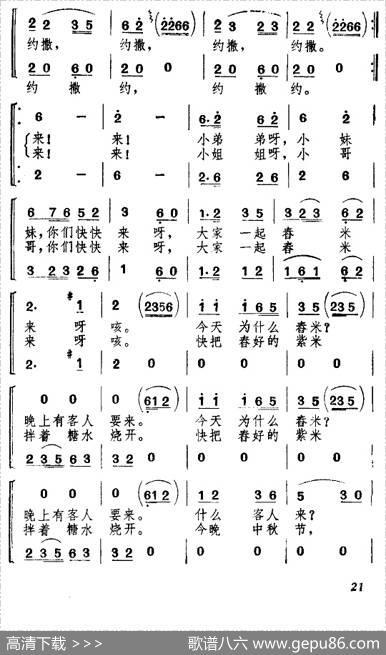 2 2 3 5 6 2 (2266) 2 3 2 3 6 2 (2266)
约撒, 约撒, 约撒, 约撒。
2 0 6 0 2 0 0 2 0 6 0 2 0 0
约 撒 约 约 撒 约。
6 - 2 - 6·2 6 2 6 2
来! 来! 小弟 弟呀, 小 妹
来! 来! 小姐 姐呀, 小 哥
2 - 6 - 2·6 2 6 2 6
6 7 6 5 2 3 6 0 1·2 3 5 3 2 3 6 2
妹,你们快快 来 呀, 大家 一起 舂 米
哥,你们快快 来 呀, 大家 一起 舂 米
3 2 3 2 6 1 6 0 1·2 1 2 1 6 1 6 2
2· #1 2 (2356) 1 1 1 6 5 3 5 (2 3 5)
来 呀 咳。 今天 为什么 舂米?
来 呀 咳。 快把 舂好的 紫米
2· #1 2 0 0 0 0 0
0 0 0 (6 1 2) 1 1 1 6 5 3 5 (2 3 5)
晚上有客人 要来。 今天 为什么 舂米?
拌着 糖水 烧开。 快把 舂好的 紫米
2 3 5 6 3 3 2 0 0 0 0 0
0 0 0 (6 1 2) 1 2 3 6 5 3 0
晚上有客人 要来。 什么 客人 来?
拌着 糖水 烧开。 今晚 中秋 节,
2 3 5 6 3 3 2 0 0 0 0 0
21
高清下载 >>> 歌谱八六 www.gepu86.com